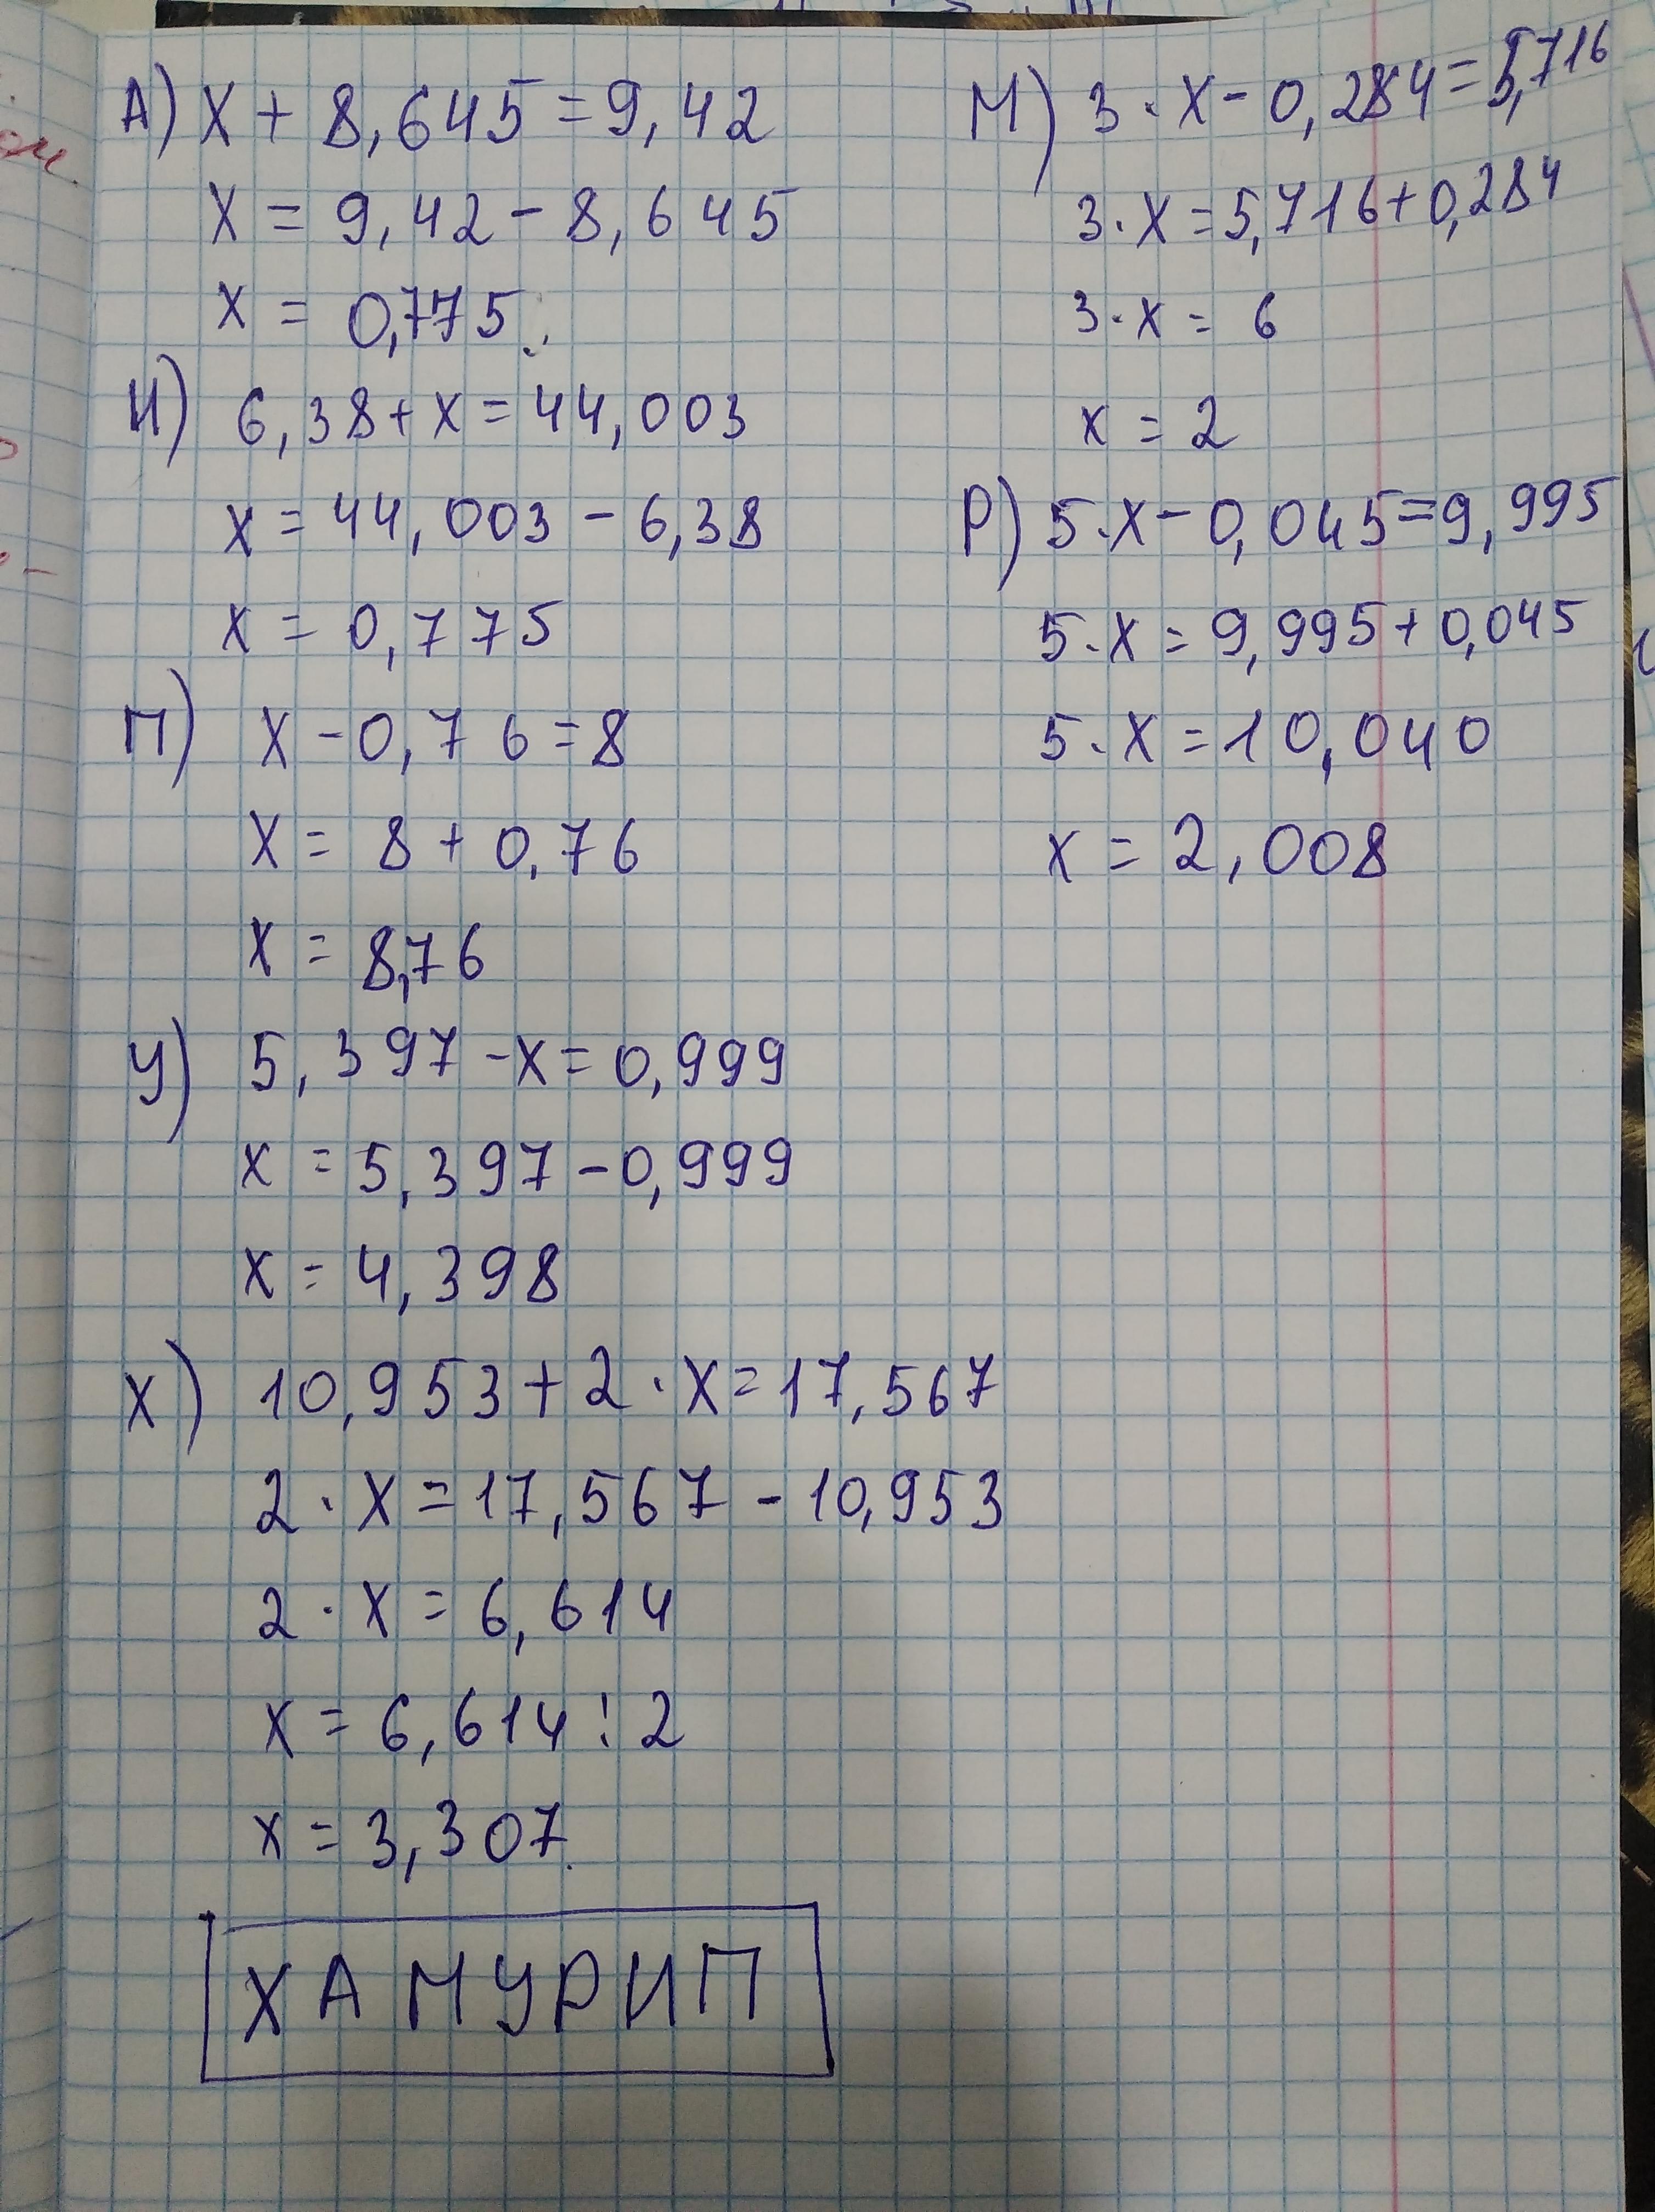 А) X + 8,645 = 9,42
X = 9,42 - 8,645
X = 0,775
И) 6,38 + X = 44,003
X = 44,003 - 6,38
X = 0,775
П) X - 0,76 = 8
X = 8 + 0,76
X = 8,76
У) 5,397 - X = 0,999
X = 5,397 - 0,999
X = 4,398
Х) 10,953 + 2 · X = 17,567
2 · X = 17,567 - 10,953
2 · X = 6,614
X = 6,614 : 2
X = 3,307
ХАМУРИП
М) 3 · X - 0,284 = 5,716
3 · X = 5,716 + 0,284
3 · X = 6
X = 2
Р) 5 · X - 0,045 = 9,995
5 · X = 9,995 + 0,045
5 · X = 10,040
X = 2,008